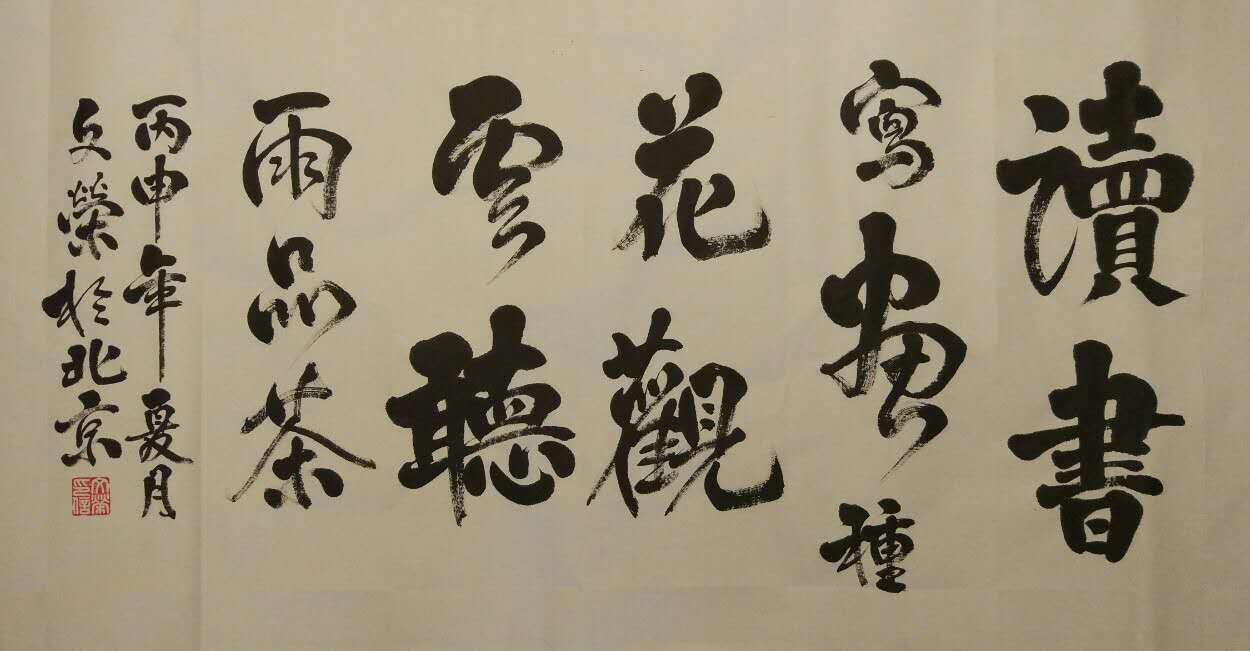 讀書
寫畫種
花觀
雲聽
雨品茶
丙申年夏月
文榮於北京